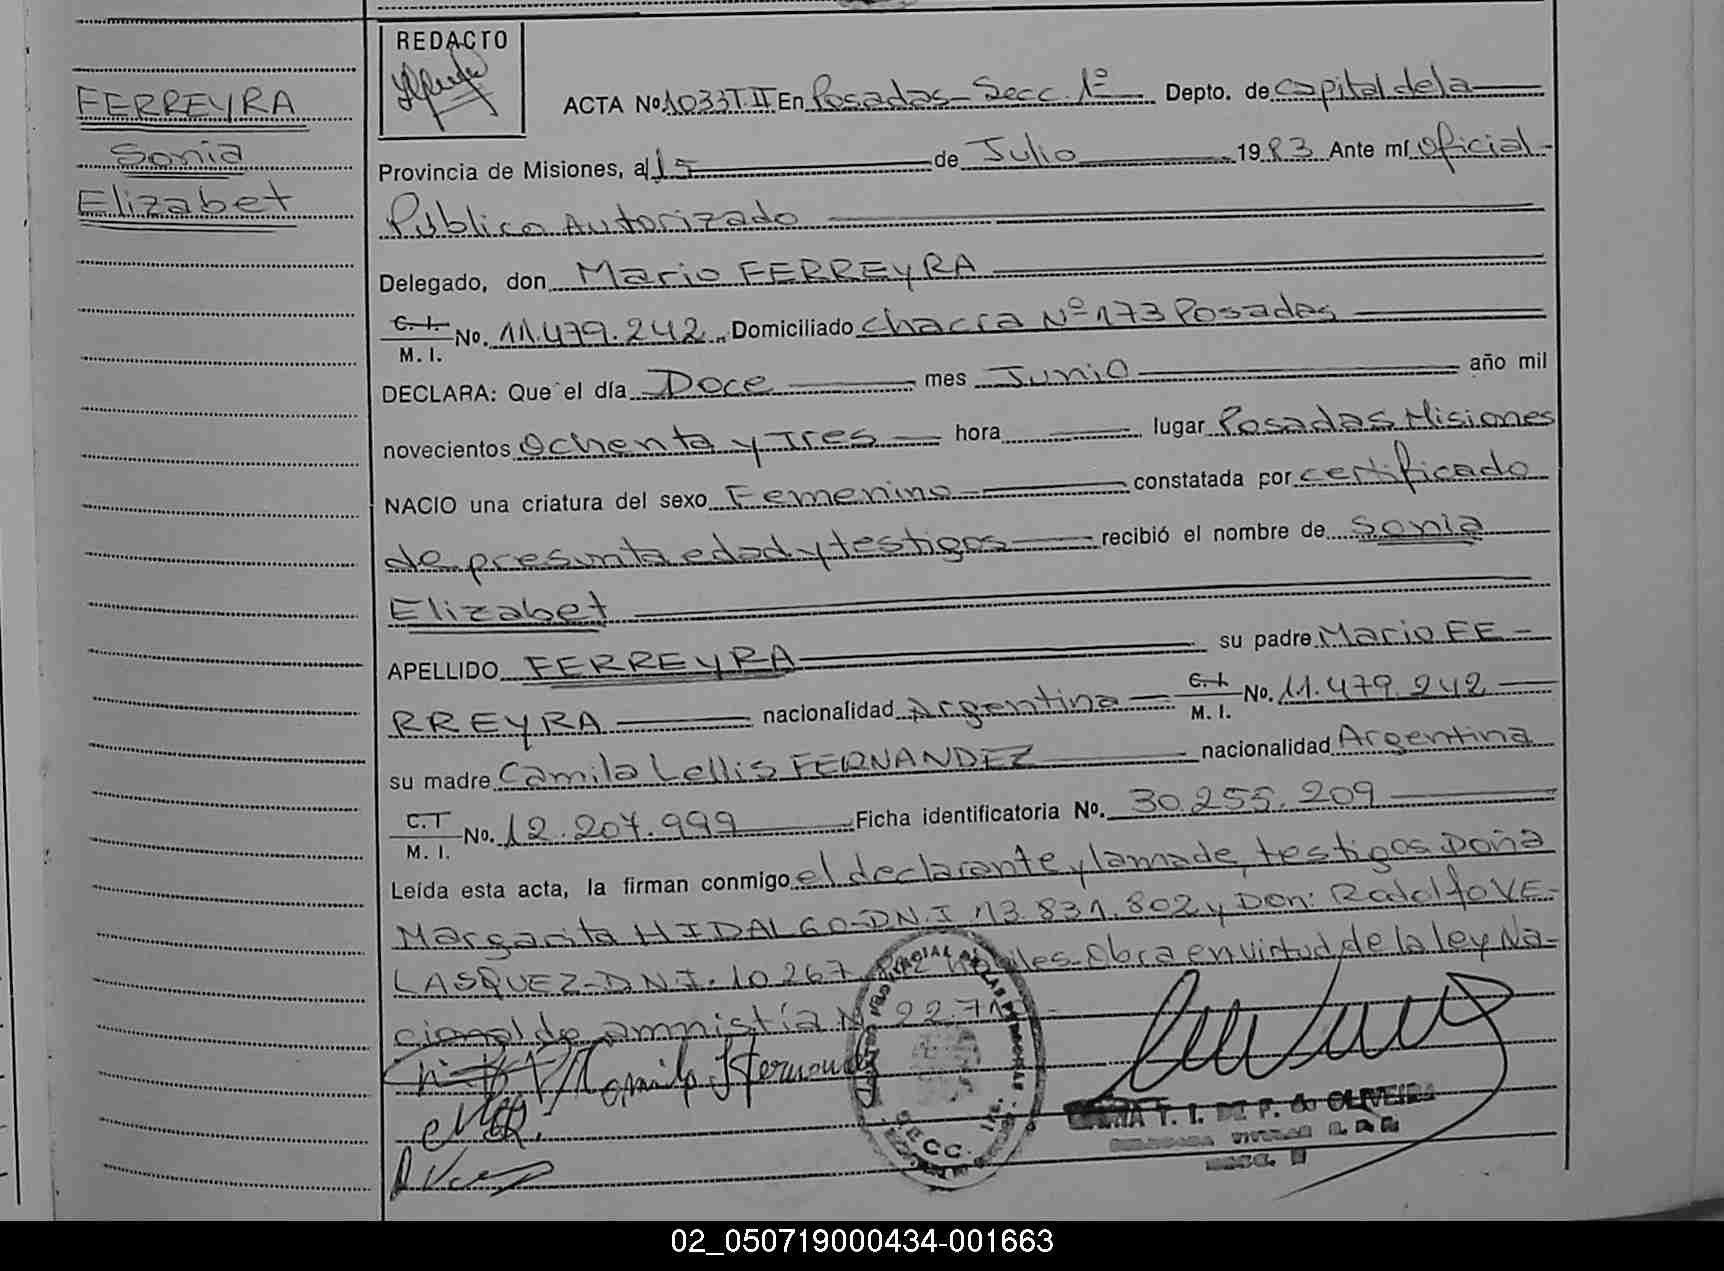 FERREYRA
Sonia
Elizabet
REDACTO
ACTA No 1033 T. II En Posadas - Secc. 1º Depto. de Capital de la
Provincia de Misiones, a 15 de Julio 1983 Ante mí Oficial -
Público Autorizado
Delegado, don Mario FERREYRA
C. I.
M. I. No. 11.479.242 Domiciliado chacra Nº 173 Posadas
DECLARA: Que el día Doce mes Junio año mil
novecientos Ochenta y Tres hora lugar Posadas Misiones
NACIO una criatura del sexo Femenino constatada por certificado
de presunta edad y testigos recibió el nombre de Sonia
Elizabet
APELLIDO FERREYRA su padre Mario FE -
RREYRA nacionalidad Argentina C. I. M. I. No. 11.479.242
su madre Camila Lellis FERNANDEZ nacionalidad Argentina
C. I.
M. I. No. 12.207.999 Ficha identificatoria No. 30.255.209
Leída esta acta, la firman conmigo el declarante y la madre, testigos Doña
Margarita HIDALGO - D.N.I. 13.831.802 y Don: Rodolfo VE -
LASQUEZ - D.N.I. 10.267 Obra en virtud de la ley Na -
cional de amnistía 22.
SECC.
OLIVEIRA
02_050719000434-001663